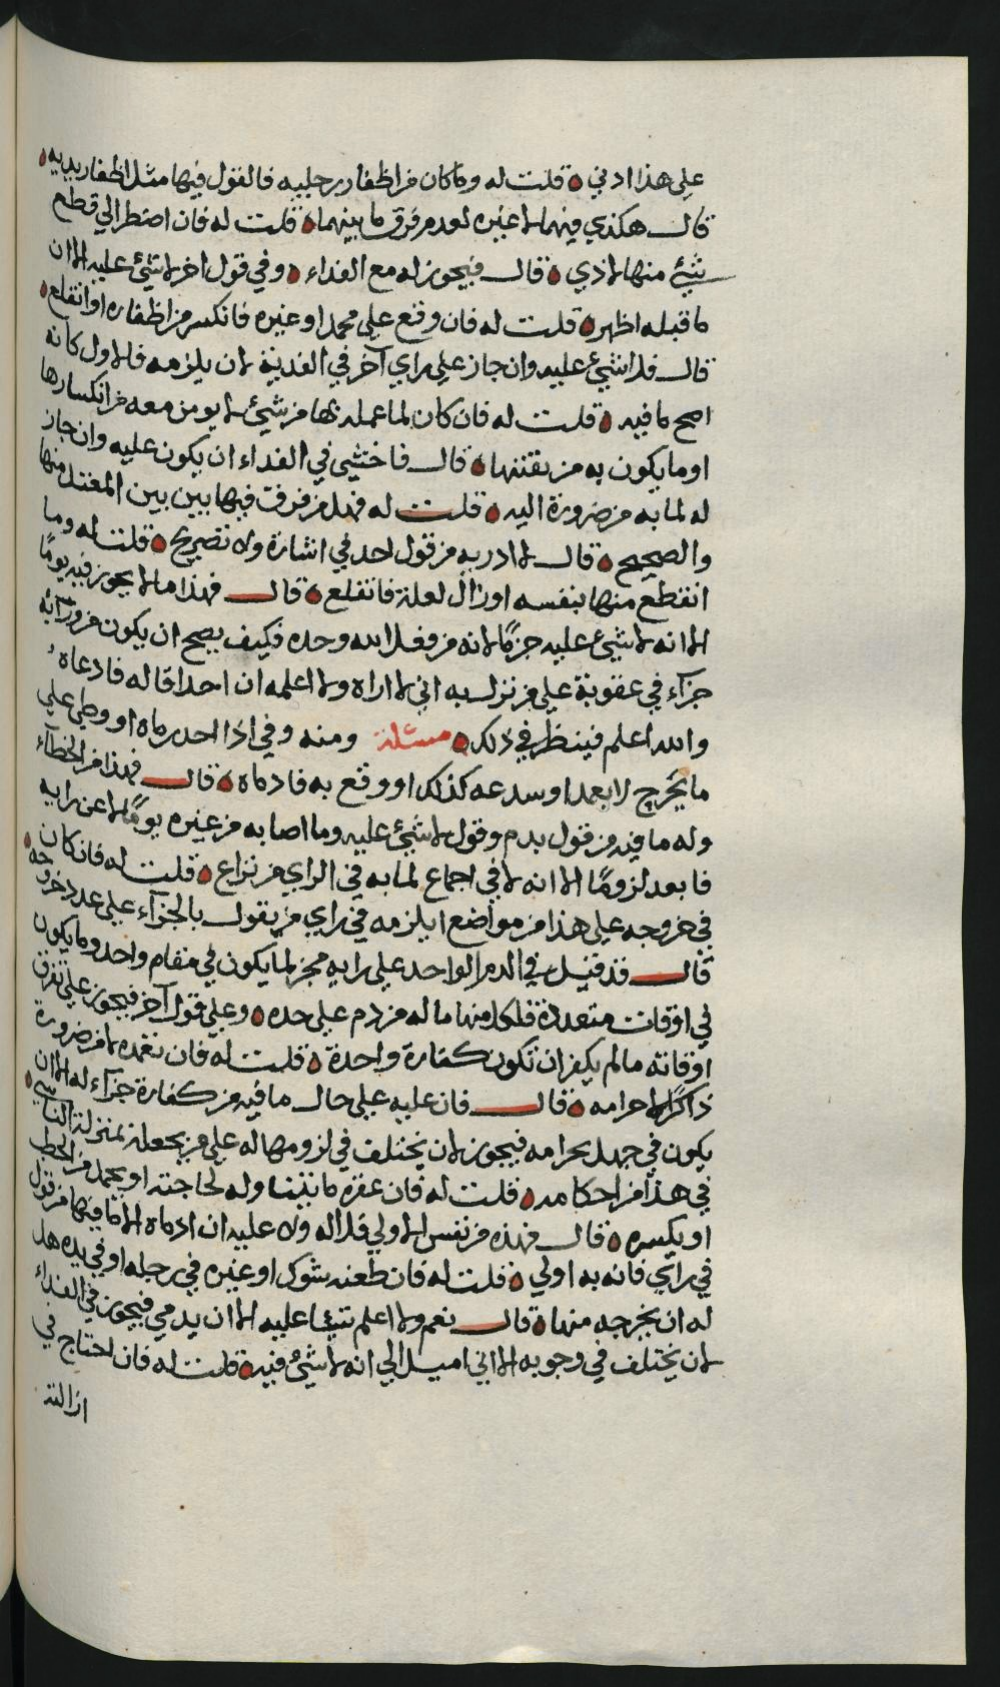 على هذا ادني ٥ قلت له وما كان من اظفار رجليه فالقول فيها مثل اظفار يديه ٥
قال هكذي فيهما لا غيره لعدم فرق ما بينهما ٥ قلت له فان اضطر الي قطع
شيئ منها لاذي ٥ قال فيجوز له مع الفداء ٥ وفي قول اخر لا شيئ عليه الا ان
ما قبله اظهر ٥ قلت له فان وقع على محمد او غيره فانكسر من اظفاره او انقلع ٥
قال فلا شيئ عليه وان جاز على راي آخر في الفدية لان يلزمه فالاول كانه
اصح ما فيه ٥ قلت له فان كان لما عمله بها من شيئ لا يومن معه من انكسارها
او ما يكون به من تفتتها ٥ قال فاخشي في الفداء ان يكون عليه وان جاز
له لما به من ضرورة اليه ٥ قلت له فهل من فرق فيها بين بين المعتل منها
والصحيح ٥ قال لا ادريه من قول احد في اشارة ولا تصريح ٥ قلت له وما
انقطع منها بنفسه او زال لعلة فانقلع ٥ قال فهذا ما لا يجوز فيه يومًا
الا انه لا شيئ عليه جزمًا لانه من فعل الله وحده فكيف يصح ان يكون من ورائه
جزآء في عقوبة على من نزل به اني لا اراه ولا اعلمه ان احدا قاله فادعاه
والله اعلم فينظر في ذلك ٥ مسئلة ومنه وفي اذا احد رماه او وطي على
ما يخرج لا بعمد او سدعه كذلك او وقع به فادماه ٥ قال فهذا من الخطآء
وله ما فيه من قول بدم وقول لا شيئ عليه وما اصابه من غيره يومًا لا عن رايه
فابعد لزومًا الا انه لا في اجماع لما به في الراي من نزاع ٥ قلت له فان كان
في خروجه على هذا من مواضع ايلزمه في راي من يقول بالجزآء على عدد خروجه ٥
قال قد قيل في الدم الواحد على رايه مجز لما يكون في مقام واحد وما يكون
في اوقات متعددة فلكل منها ما له من دم على حده ٥ وعلى قول آخر فيجوز على تفرق
اوقاته ما لم يكفر ان تكون كفارة واحدة ٥ قلت له فان تعمده لا من ضرورة
ذاكرًا لاحرامه ٥ قال فان عليه على حال ما فيه من كفارة جزآء له الا ان
يكون في جهل بحرامه فيجوز لان يختلف في لزومها له على من يجعله بمنزلة الناسي ٥
في هذا من احكامه ٥ قلت له فان عقره ما يتناوله لحاجته او يحمل من الحطب
او يكسره ٥ قال فهذه من نفس الاولي فلا له ولا عليه ان ادماه الا ما فيها من قول
في راي فانه به اولي ٥ قلت له فان طعنه شوك او غيره في رجله او في يده هل
له ان يخرجه منها ٥ قال نعم ولا اعلم شيئا عليه الا ان يدمي فيجوز في الفداء
لان يختلف في وجوبه الا اني اميل الي انه لا شيئ فيه ٥ قلت له فان احتاج في
ازالته